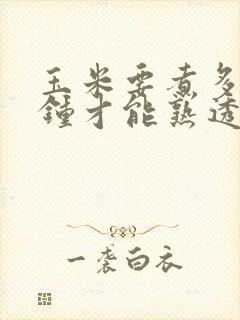 玉米要煮多
鍾才能熟透
一袭白衣